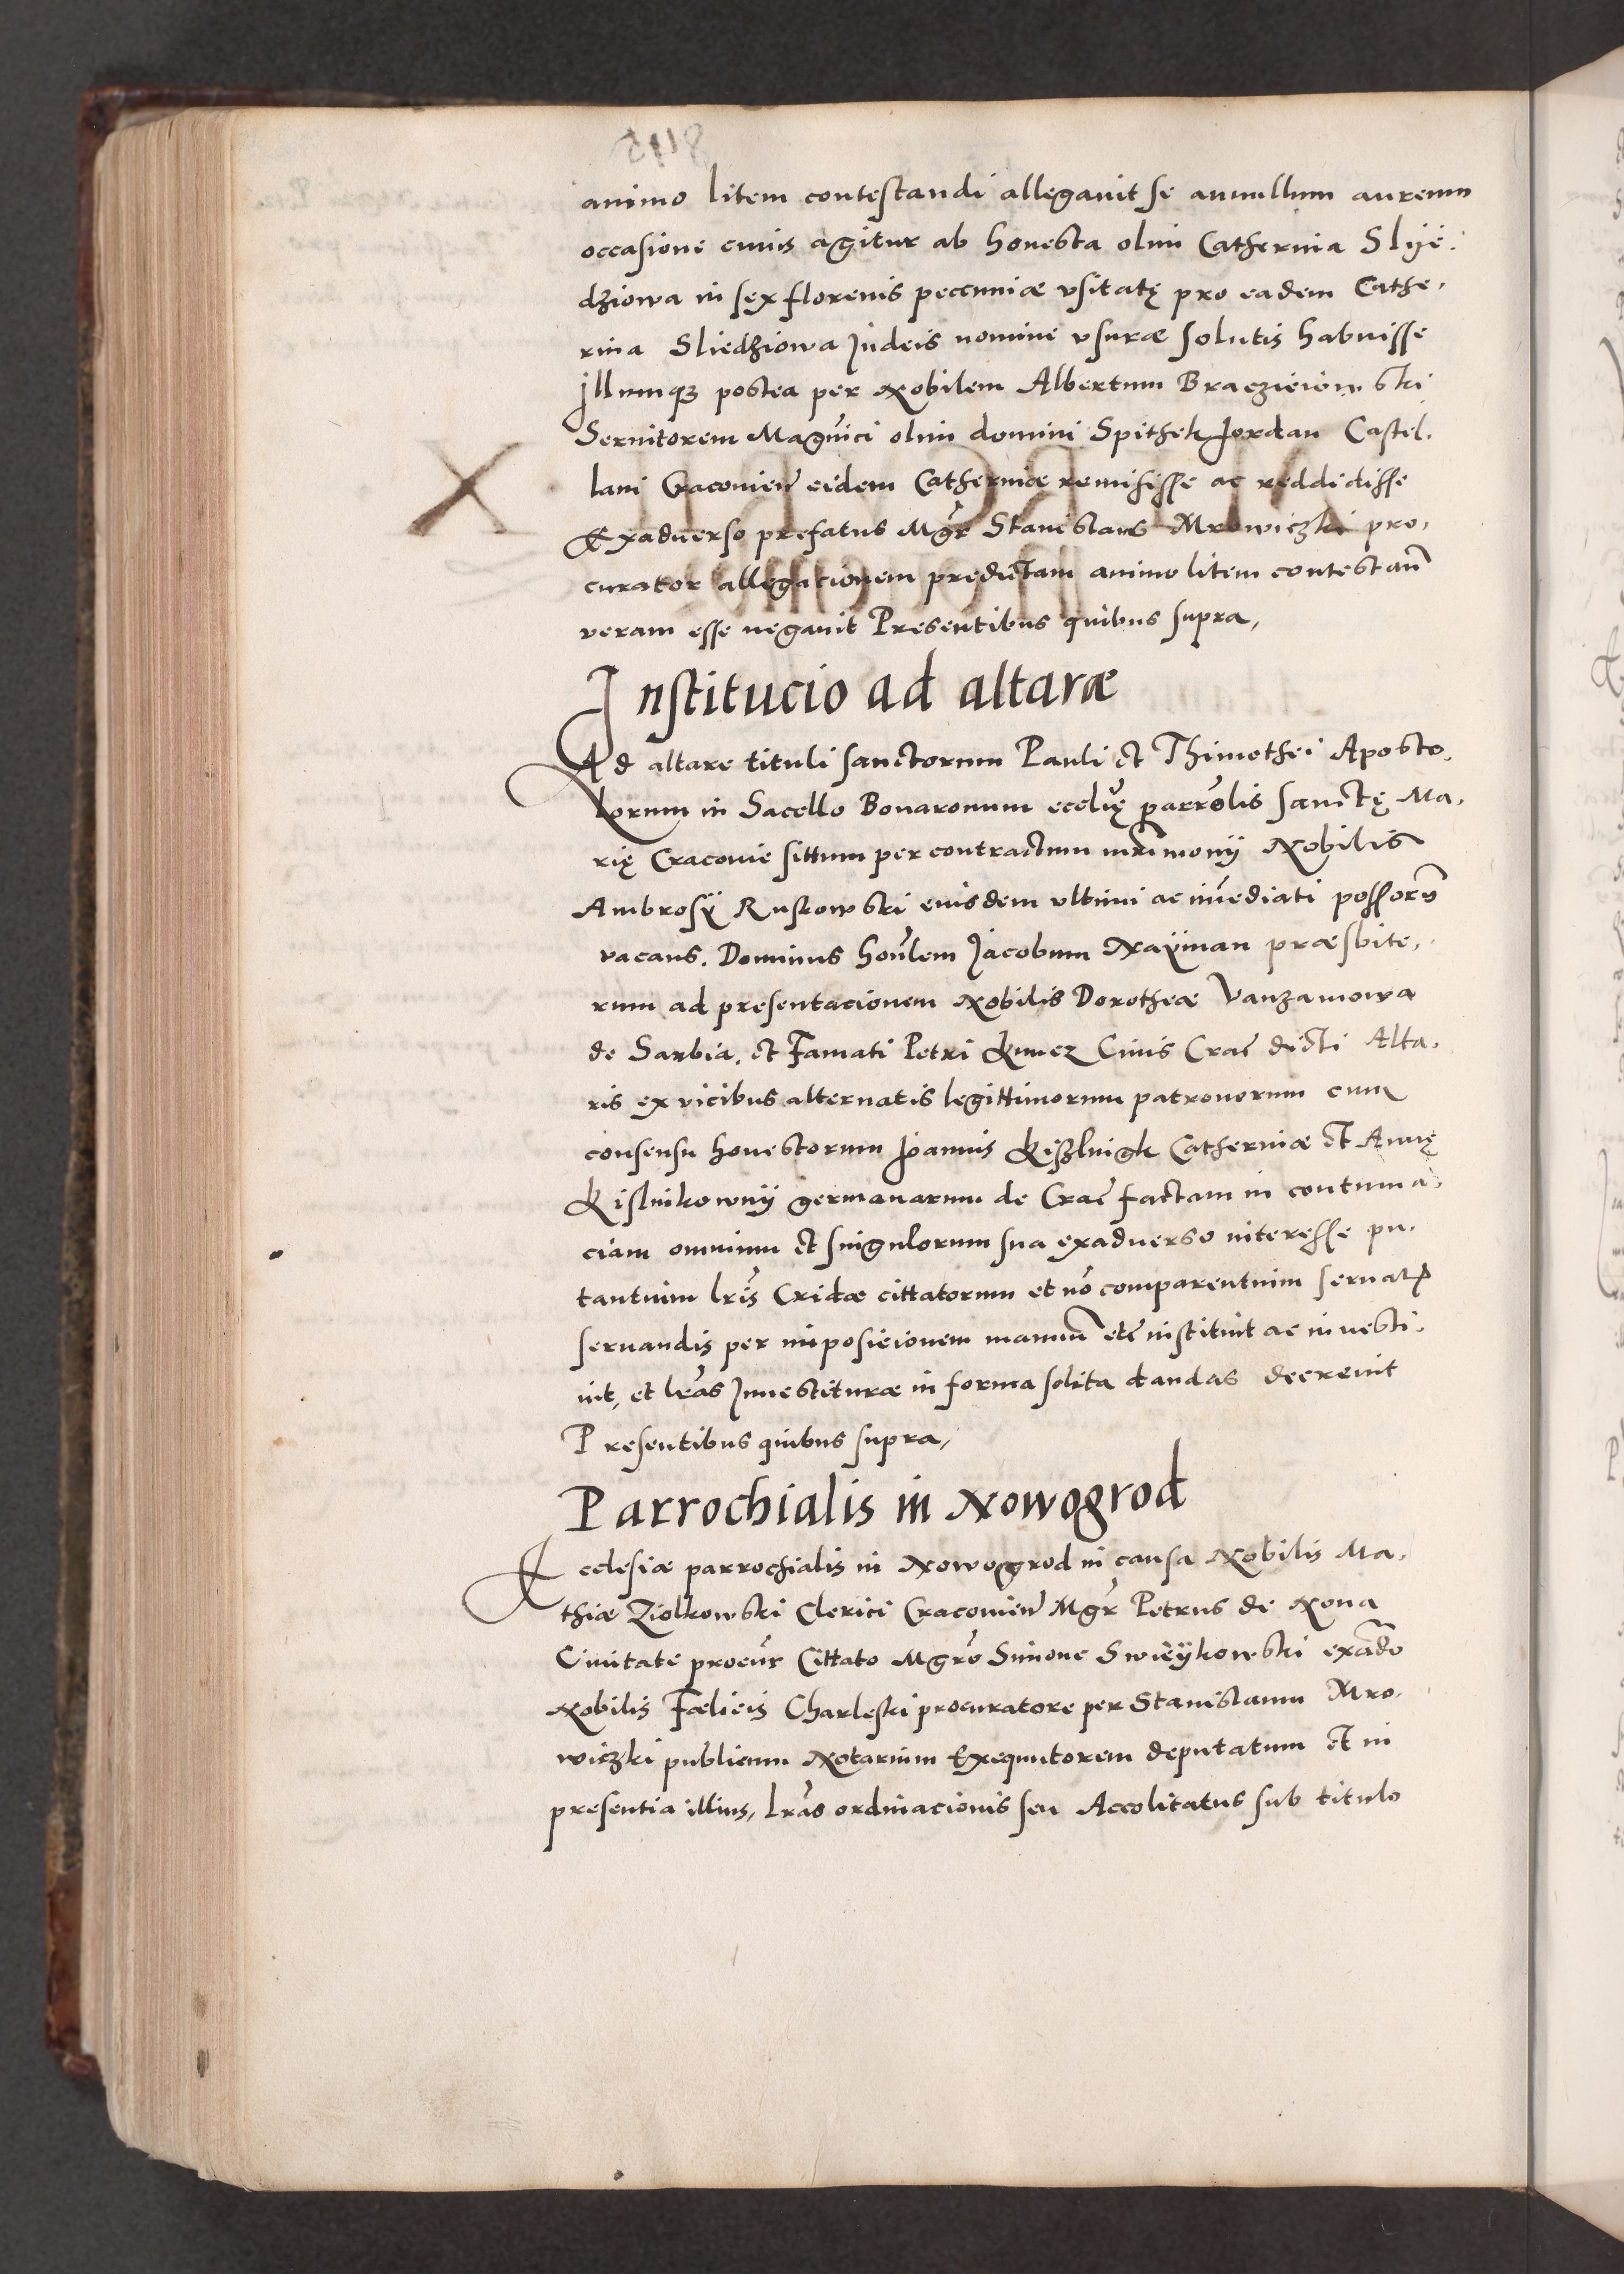 animo litem contestandi allegauit se annullum aureum
occasione cuius agitur ab honesta olim Catherina Slÿe.
dziowa in sex florenis peccuniæ vsitatę pro eadem Cathe,
rina Sliedziowa Judeis nomine vsuræ solutis habuisse
Jllumqꝫ postea per Nobilem Albertum Braczieiowski
Seruitorem Magnⁱci olim domini Spithek Jordan Castel,
lani Cracouien̄ eidem Catherinæ remisisse ac reddidisse
Exaduerso prefatus Mgr̄ Stanislaus Mrowiczki pro,
curator allegacionem predictam animo litem contestan̄
veram esse negauit Presentibus quibus supra,
Institucio ad altaræ
Ad altare tituli sanctorum Pauli et Thimothei Aposto,
lorum in Sacello Bonaronum eccl̄ię parro̅lis sanctę Ma,
rię Cracouie sittum per contractum mr̄imonÿ Nobilis
Ambrosÿ Ruskowski eiusdem vltimi ac im̄ediati possoris̄
vacans. Dominus hon̄lem Jacobum Naÿman præsbite,
rum ad presentacionem Nobilis Dorotheæ Vanzamowa
de Sarbia, et Famati Petri Kuncz Ciuis Crac̄ dicti Alta,
ris ex vicibus alternatis legittimorum patronorum cum
consensu honestorum Joannis Kiszlnigk Catherinæ et Annę
Kislnikownÿ germanarum de Crac̄ factam in contuma,
ciam omnium et singulorum sua exaduerso interesse pu,
tantium lr̄is Cridæ cittatorum et nō comparentium seruatꝭ
seruandis per imposicionem manuū etc̄ instituit ac inuesti,
uit, et lr̄as Inuestituræ in forma solita dandas decreuit
Presentibus quibus supra,
Parrochialis in Nowogrod
Ecclesiæ parrochialis in Nowogrod in causa Nobilis Ma,
thiæ Ziolkowski Clerici Cracouien̄ Mgr̄ Petrus de Noua
Ciuitate procur̄ Cittato Mgrō Simone Swieÿkowski exad̄o
Nobilis Fælicis Charleski procuratore per Stanislaum Mro,
wiczki publicum Notarium Exequutorem deputatum et in
presentia illius, lr̄as ordinacionis seu Accolitatus sub titulo